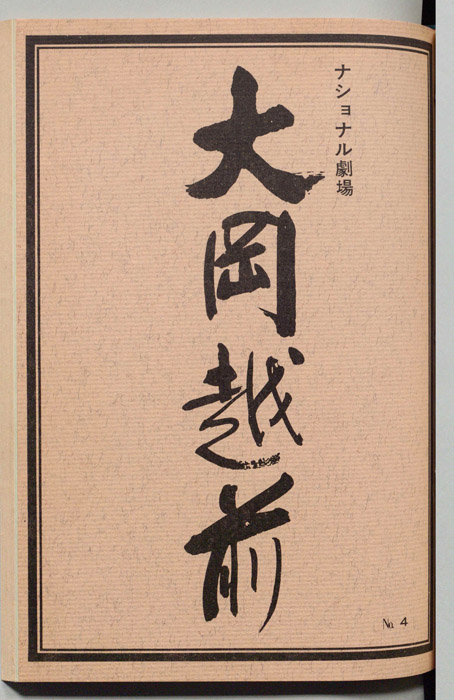 ナショナル劇場
大岡越前
No. 4